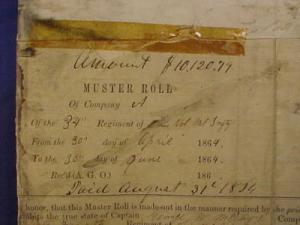 Amount $10,120.79
MUSTER ROLL
Of Company A
Of the 34th Regiment of Vol Infty
From the 30th day of April 1864.
To the 30th day of June 1864.
Rec'd (A. G. O.) 186 .
Paid August 31st 1864
honor, that this Muster Roll is made out in the manner required by the
the true state of Captain
Regiment of